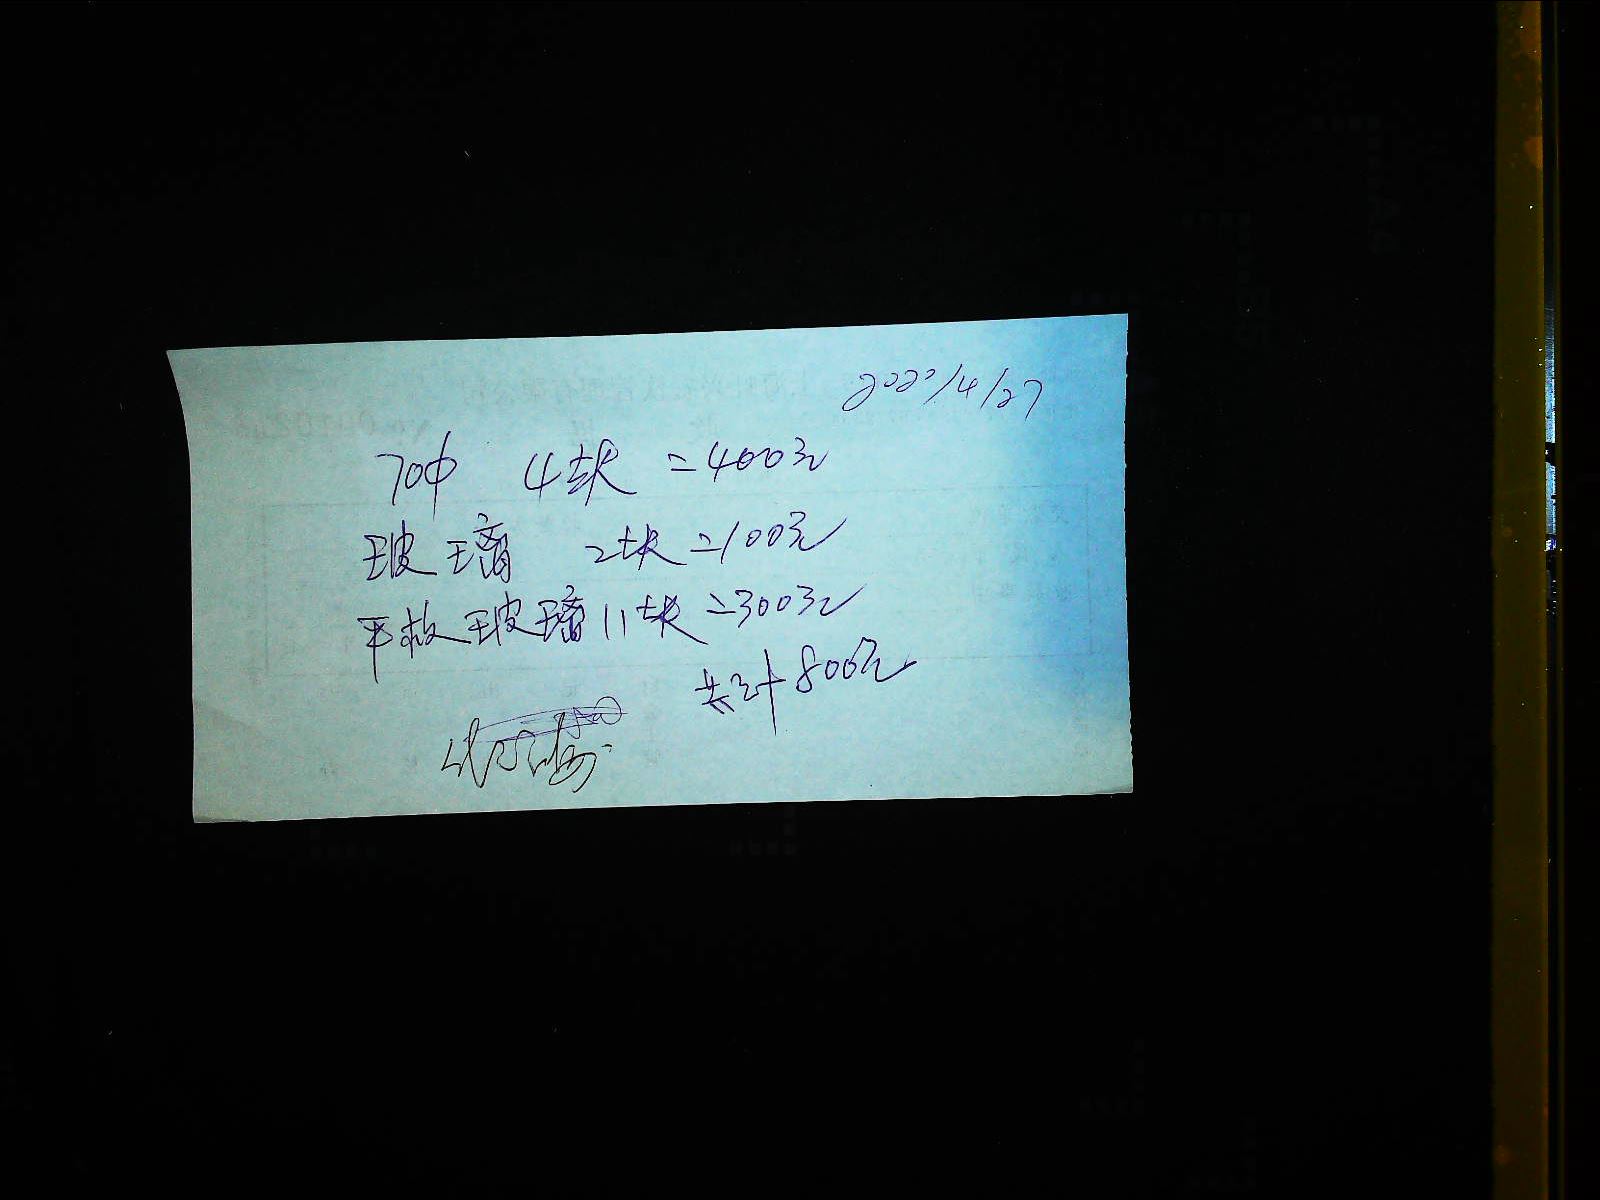 2022/4/27
70中 4块 =400元
玻璃 2块=100元
平板玻璃11块=300元
共计800元